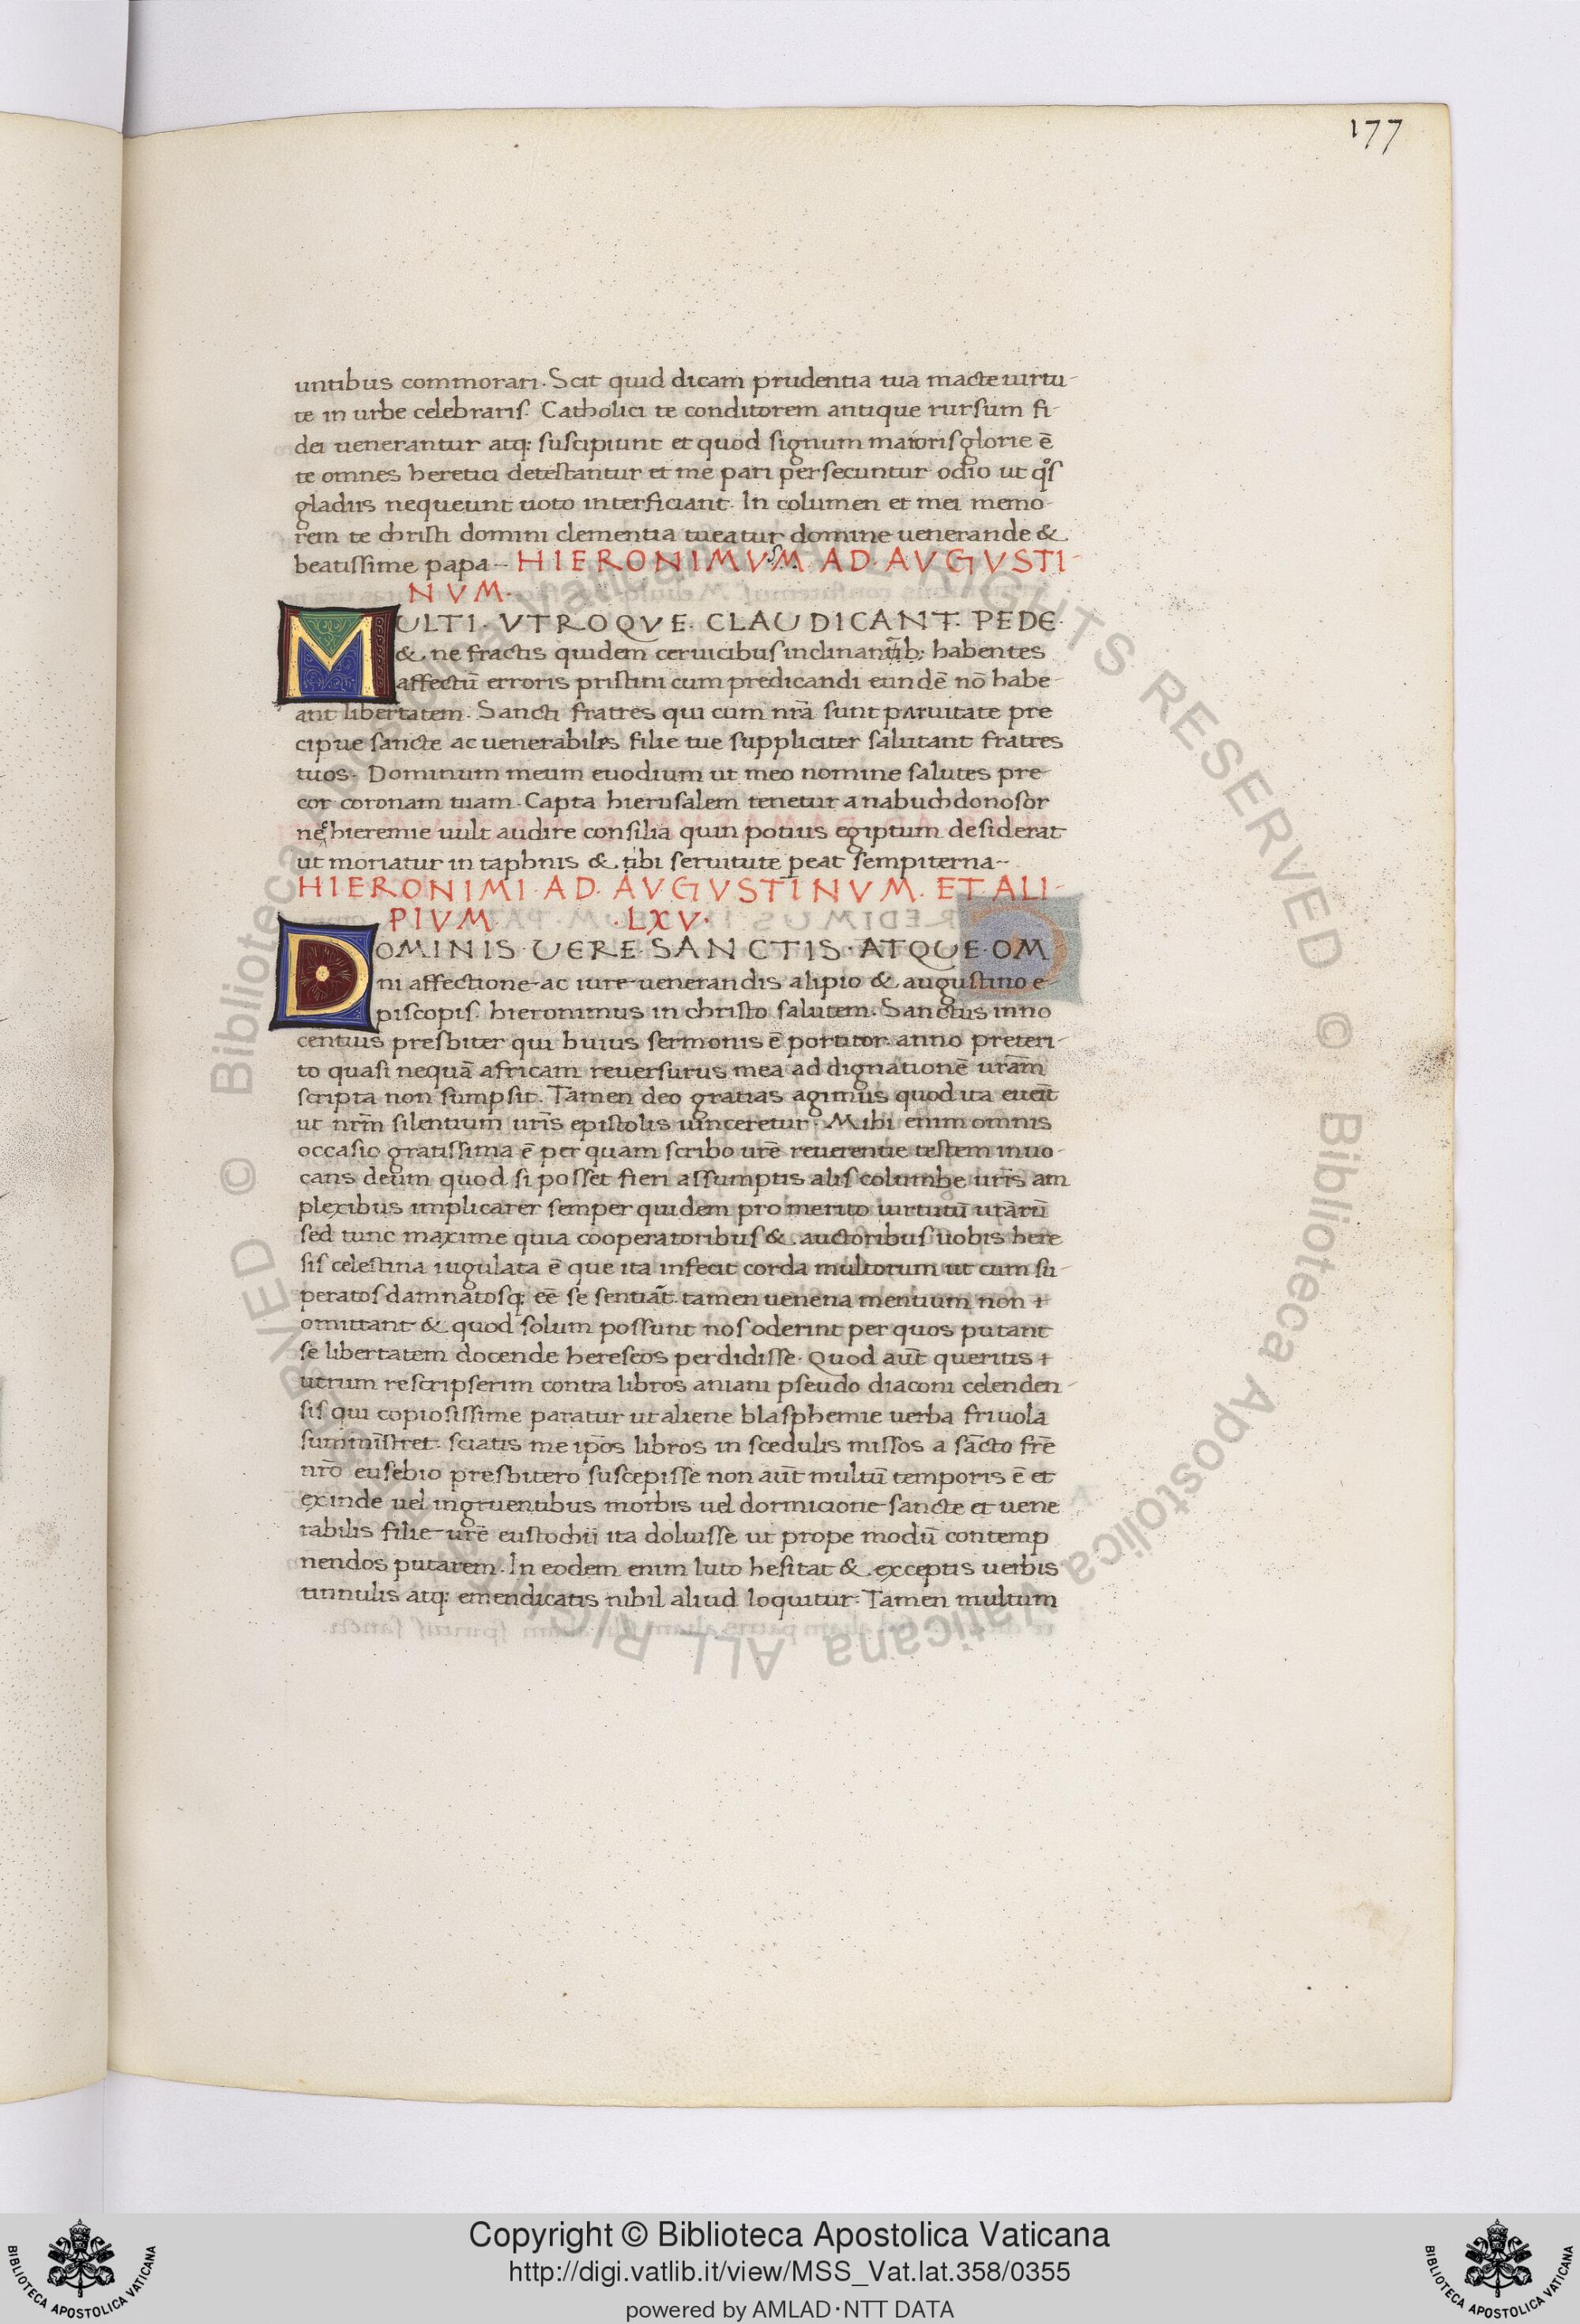 177
untibus commorari. Scit quid dicam prudentia tua macte uirtu-
te in urbe celebraris. Catholici te conditorem antique rursum fi-
dei uenerantur atq: suscipiunt et quod signum maioris glorie ē
te omnes heretici detestantur et me pari persecuntur odio ut qͦs
gladiis nequeunt uoto interficiant. In columen et mei memo-
rem te christi domini clementia tueatur domine uenerande &
beatissime papa-- HIERONIMVM. AD. AVGVSTI-
NVM.
MULTI. VTROQVE. CLAUDICANT. PEDE.
&. ne fractis quidem ceruicibus inclinant̄ib; habentes
affectū erroris pristini cum predicandi eundē nō habe-
ant libertatem. Sancti fratres qui cum nrā sunt paruitate pre
cipue sancte ac uenerabiles filie tue suppliciter salutant fratres
tuos. Dominum meum euodium ut meo nomine salutes pre-
cor coronam tuam. Capta hierusalem tenetur a nabuchdonosor
nec hieremie uult audire consilia quin potius egiptum desiderat
ut moriatur in taphnis &. tibi seruitute peat sempiterna--
HIERONIMI. AD. AVGVSTINVM. ET. ALI-
PIVM. .LXV.
DOMINIS. UERE. SANCTIS. ATQUE. OM
ni affectione ac iure uenerandis alipio &. augustino e-
piscopis. hieronimus in christo salutem. Sanctus inno
centius presbiter qui huius sermonis ē portitor. anno preteri-
to quasi nequā africam reuersurus mea ad dignationē urām
scripta non sumpsit. Tamen deo gratias agimus quod ita euēit
ut nrm̄ silentium uris̄ epistolis uinceretur. Mihi enim omnis
occasio gratissima ē per quam scribo urē reuerentie testem inuo-
cans deum quod si posset fieri assumptis alis columbe uris̄ am
plexibus implicarer semper quidem pro merito uirtutū urārū
sed tunc maxime quia cooperatoribus &. auctoribus uobis here
sis celestina iugulata ē que ita infecit corda multorum ut cum su-
peratos damnatosq: eē se sentiāt. tamen uenena mentium non
omittant & quod solum possunt nos oderint per quos putant
se libertatem docende hereseos perdidisse. Quod aūt queritis
utrum rescripserim contra libros aniani pseudo diaconi celenden-
sis qui copiosissime paratur ut aliene blasphemie uerba friuola
sumministret. sciatis me ipōs libros in scedulis missos a sācto frē
nrō eusebio presbitero suscepisse non aūt multū temporis ē et
exinde uel ingruentibus morbis uel dormicione sancte et uene
rabilis filie urē eustochii ita doluisse ut prope modū contemp
nendos putarem. In eodem enim luto hesitat &. exceptis uerbis
tinnulis atq: emendicatis nihil aliud loquitur. Tamen multum
© Biblioteca Apostolica Vaticana ALL RIGHTS RESERVED
Copyright © Biblioteca Apostolica Vaticana
http://digi.vatlib.it/view/MSS_Vat.lat.358/0355
powered by AMLAD·NTT DATA
BIBLIOTECA APOSTOLICA VATICANA
BIBLIOTECA APOSTOLICA VATICANA